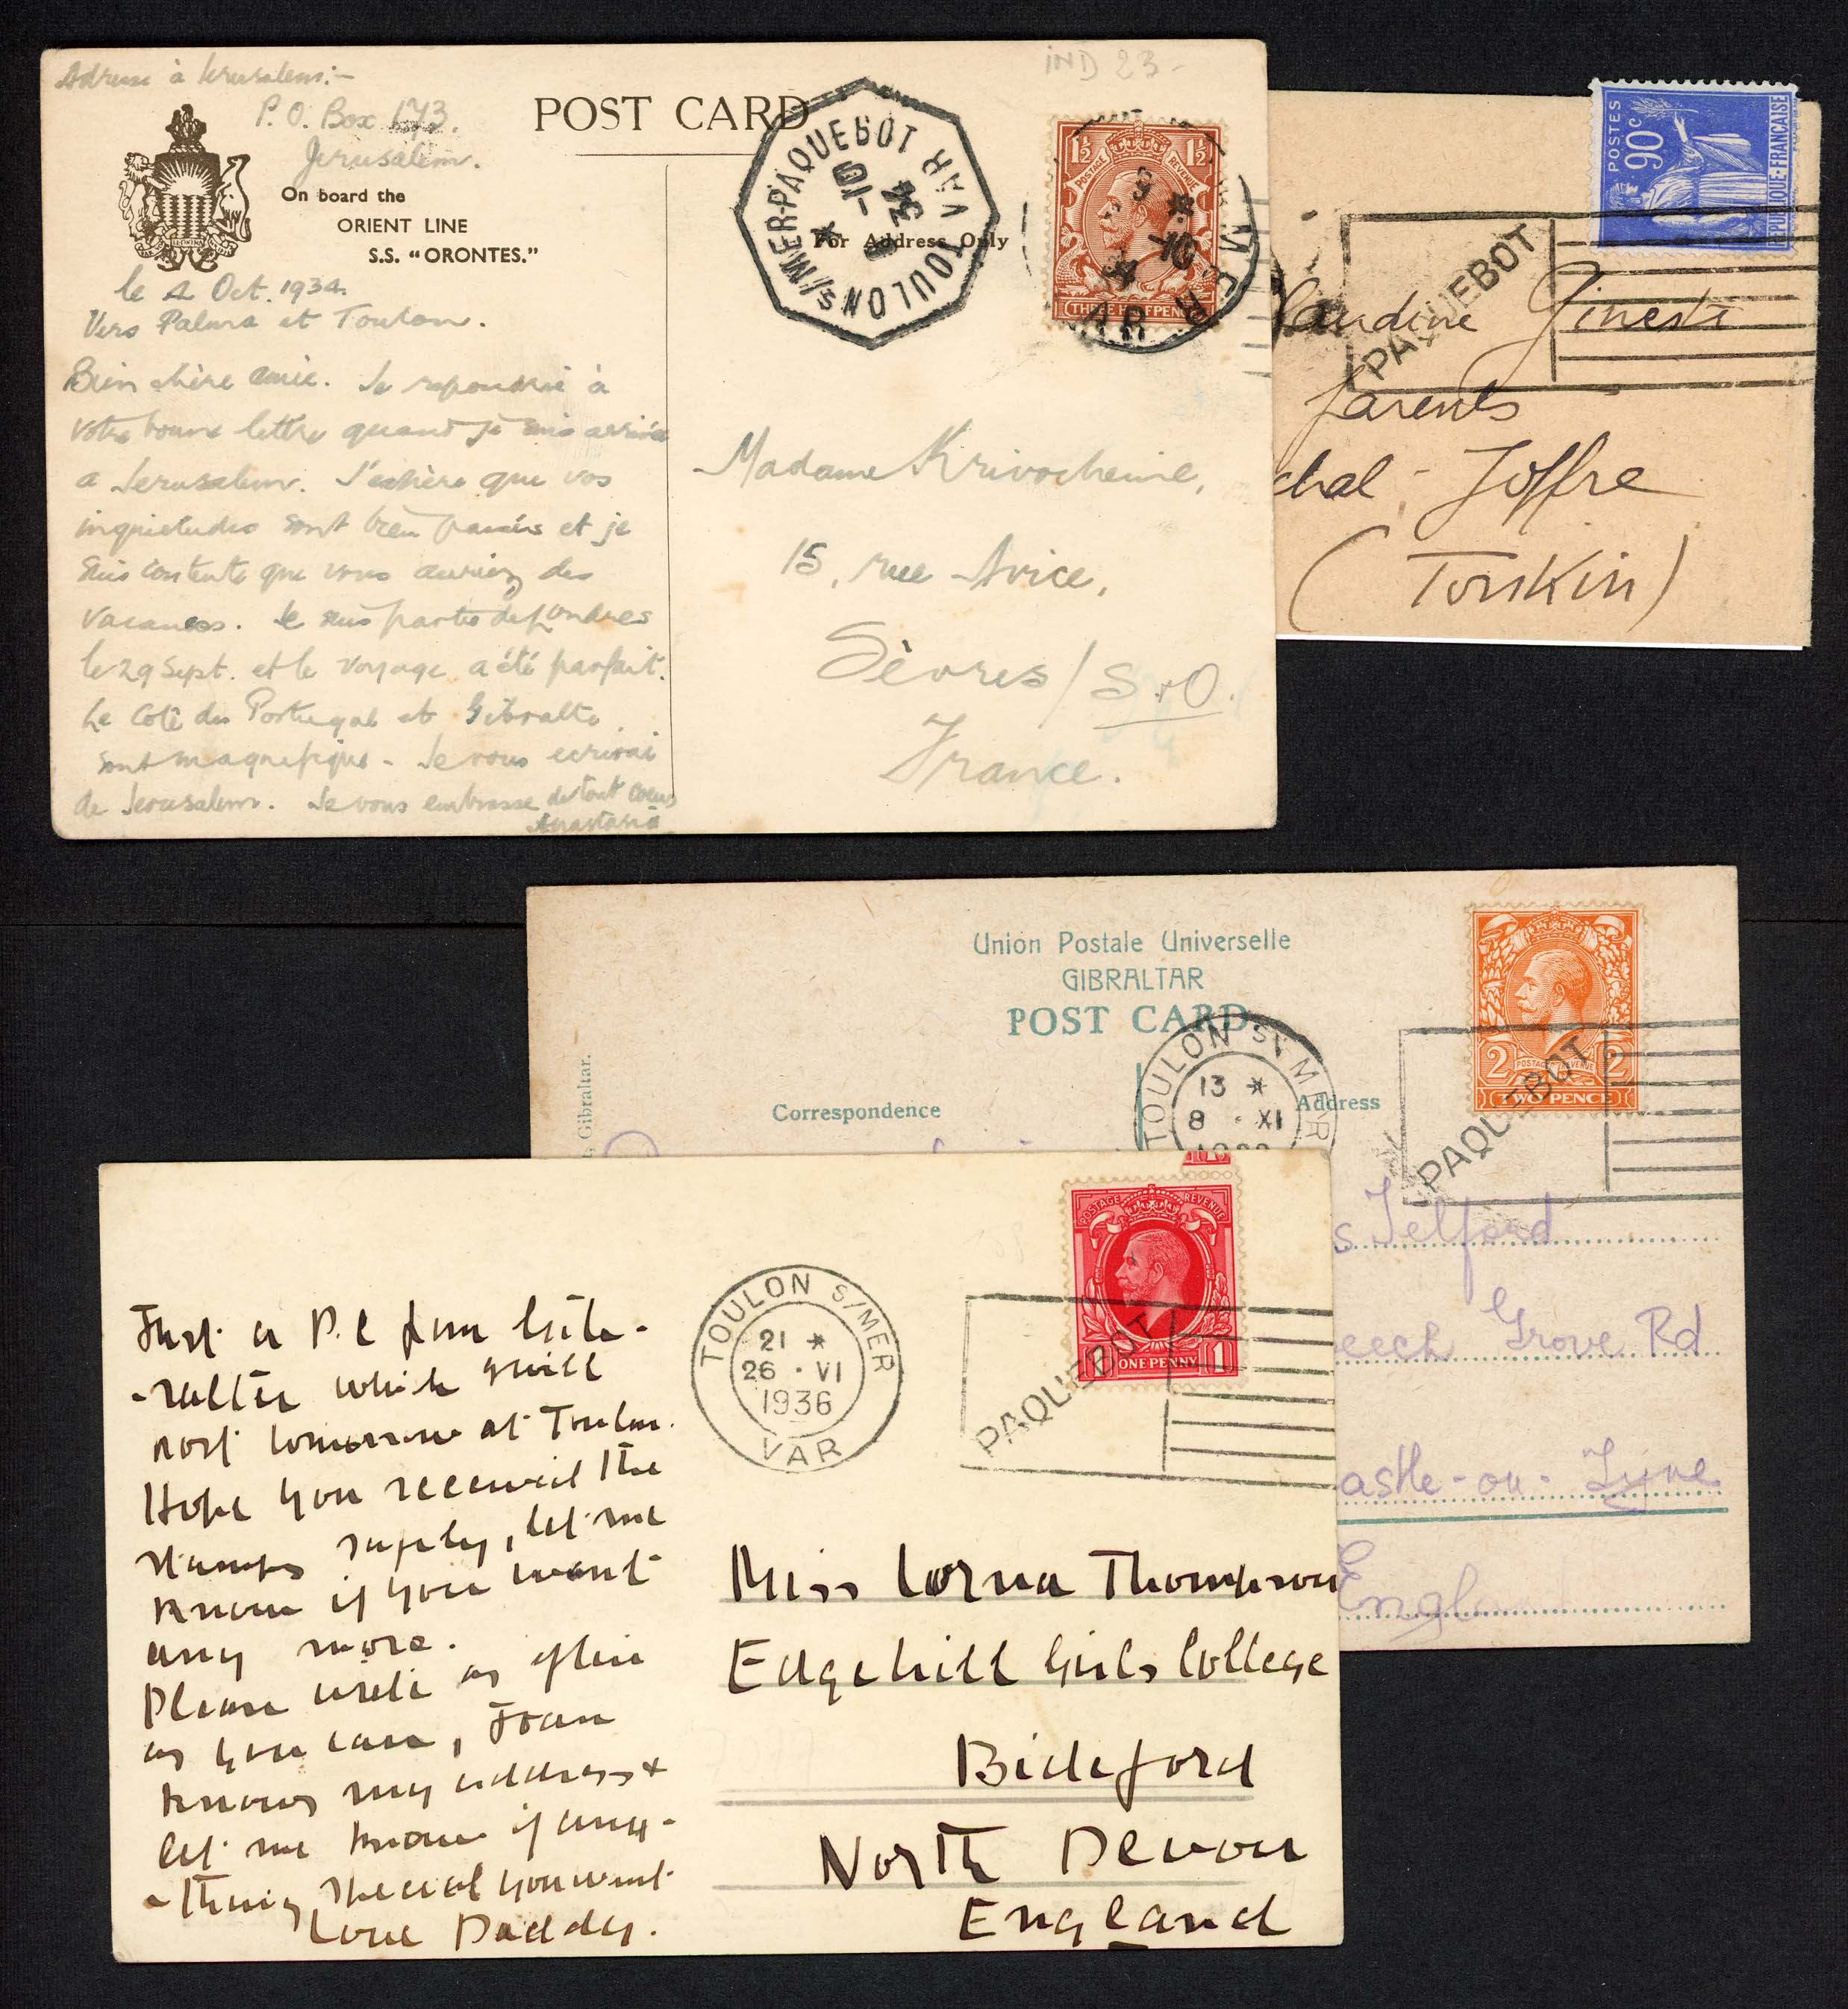 IND 23-
Adresse à Jerusalem:-
P.O. Box 173.
Jerusalem.
POST CARD
On board the
ORIENT LINE
S.S. "ORONTES."
For Address Only
TOULON S/MER-PAQUEBOT VAR
10
34
1½ 1½
POSTAGE REVENUE
THREE HALFPENCE
MER
VAR
le 4 Oct. 1934.
Vers Palma et Toulon.
Bien chère amie. Je repondrai à
votre bonne lettre quand je suis arrivée
a Jerusalem. J'espère que vos
inquietudes sont bien passés et je
suis contente que vous auriez des
vacances. Je suis partie de Londres
le 29 Sept. et le voyage a été parfait.
Le Coté du Portugal et Gibralta
sont magnifique - Je vous ecrirai
de Jerusalem. Je vous embrasse de tout coeur
Anastasia
Madame Krivocheine,
15, rue Avice,
Sèvres/S.&O.
France.
POSTES
90c
REPUBLIQUE-FRANÇAISE
PAQUEBOT
laudine Ginesti
parents
chal-Joffre
(Tonkin)
Union Postale Universelle
GIBRALTAR
POST CARD
Gibraltar.
Correspondence
Address
TOULON S/MER
13 *
8 · XI
2 2
POSTAGE REVENUE
TWO PENCE
PAQUEBOT
s Telford
eech Grove Rd
astle-on-Tyne
England
POSTAGE REVENUE
1 ONE PENNY 1
PAQUEBOT
TOULON S/MER
21 *
26 · VI
1936
VAR
Just a P.C from Gib-
-ralter which I will
post tomorrow at Toulon.
Hope you received the
stamps safely, let me
know if you want
any more.
Please write as often
as you can, Joan
knows my address +
let me know if any-
-thing special you want
Love Daddy.
Miss Lorna Thompson
Edgehill Girls College
Bideford
North Devon
England